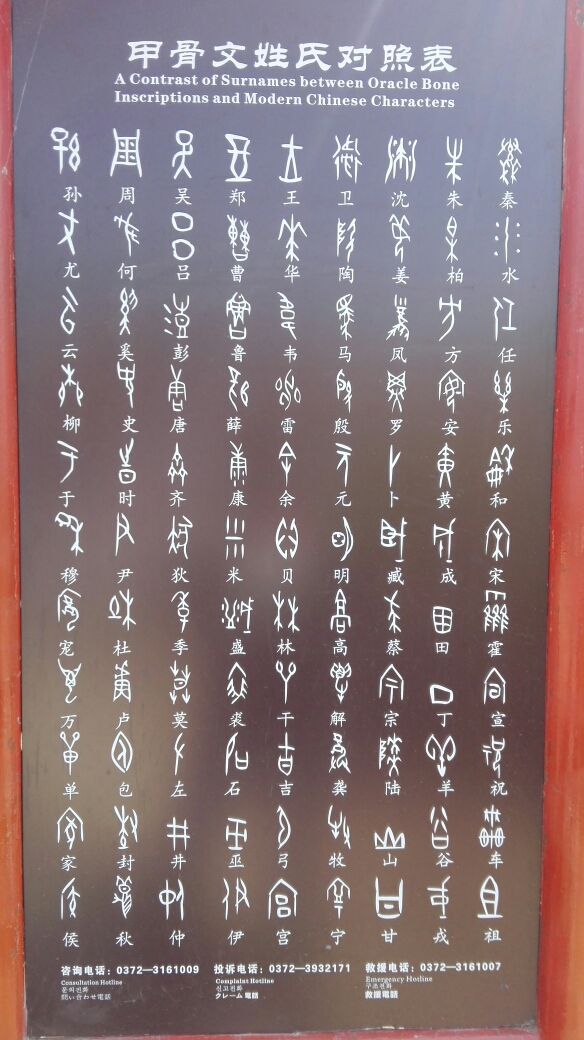 甲骨文姓氏对照表
A Contrast of Surnames between Oracle Bone
Inscriptions and Modern Chinese Characters
孙 周 吴 郑 王 卫 沈 朱 秦
尤 何 吕 曹 华 陶 姜 柏 水
云 奚 彭 鲁 韦 马 凤 方 任
柳 史 唐 薛 雷 殷 罗 安 乐
于 时 齐 康 余 元 卜 黄 和
穆 尹 狄 米 贝 明 臧 成 宋
宠 杜 季 盛 林 高 蔡 田 霍
万 卢 莫 裘 干 解 宗 丁 宣
单 包 左 石 吉 龚 陆 羊 祝
家 封 井 巫 弓 牧 山 谷 车
侯 秋 仲 伊 宫 宁 甘 戎 祖
咨询电话：0372—3161009 投诉电话：0372—3932171 救援电话：0372—3161007
Consultation Hotline Complaint Hotline Emergency Hotline
문의전화 신고전화 구조전화
問い合わせ電話 クレーム電話 救援電話